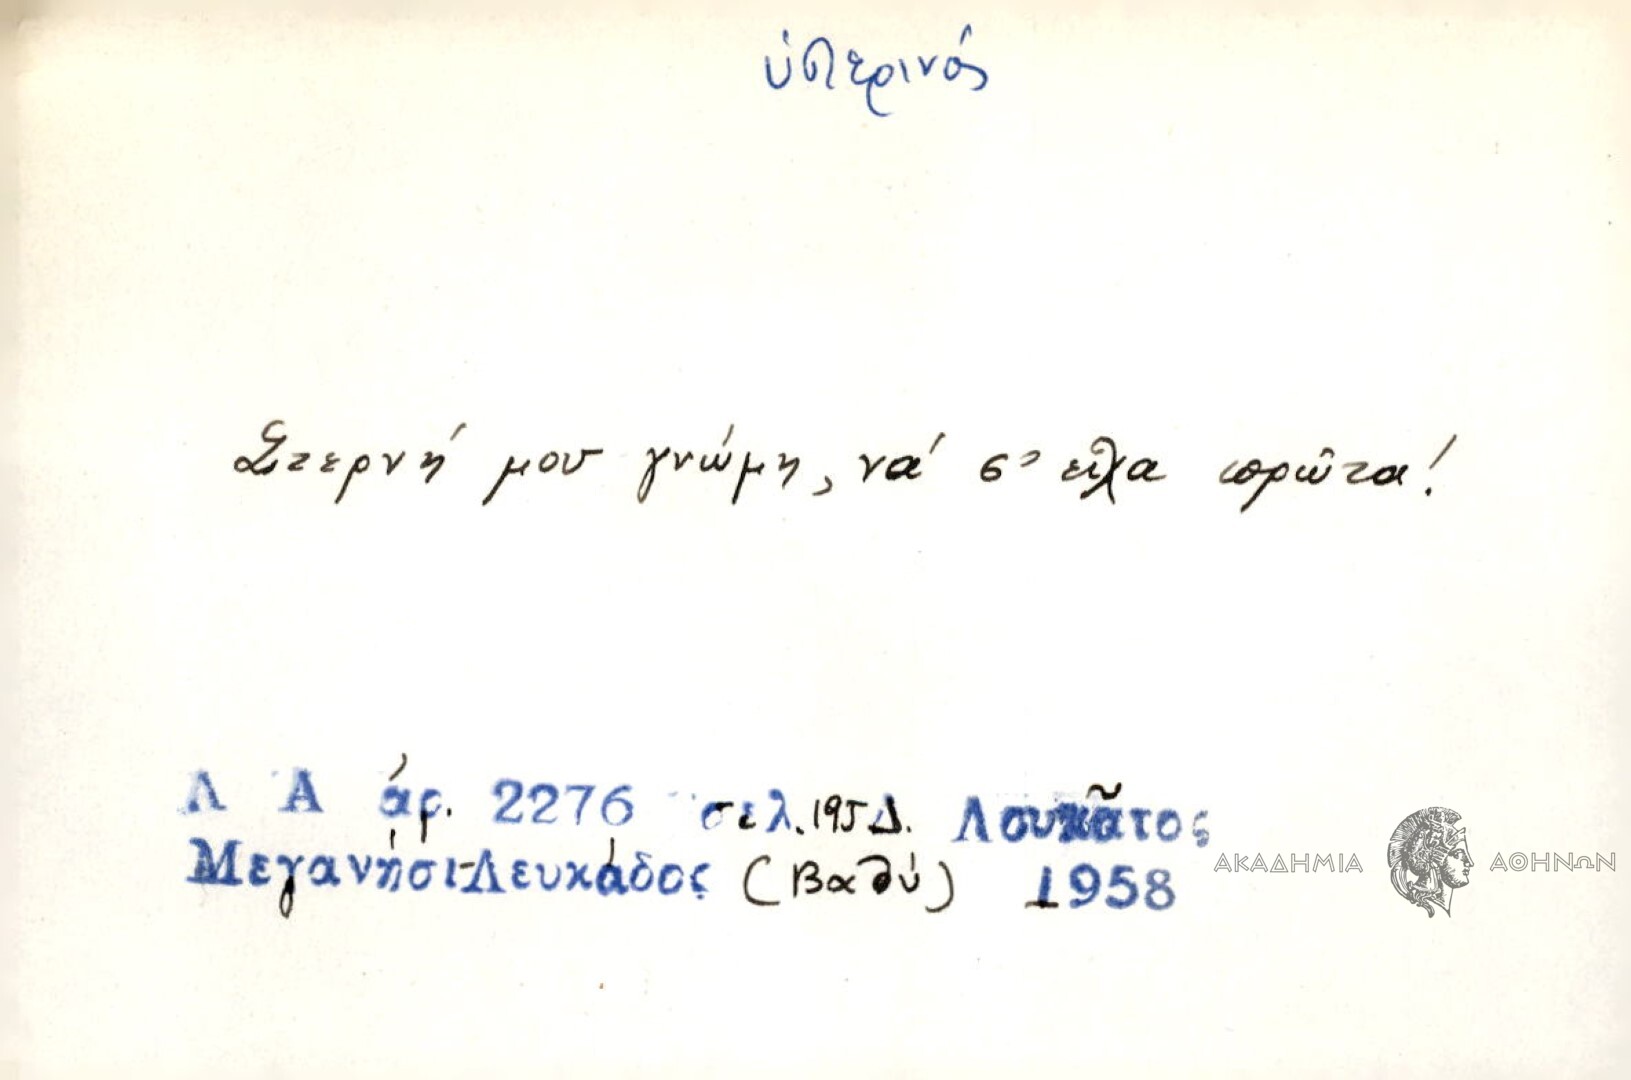 ὑστερινός
Στερνή μου γνώμη, νά σ' εἶχα πρῶτα!
Λ Α ἀρ. 2276 σελ. 195Δ. Λουκᾶτος
Μεγανήσι-Λευκάδος (Βαθύ) 1958
ΑΚΑΔΗΜΙΑ ΑΘΗΝΩΝ